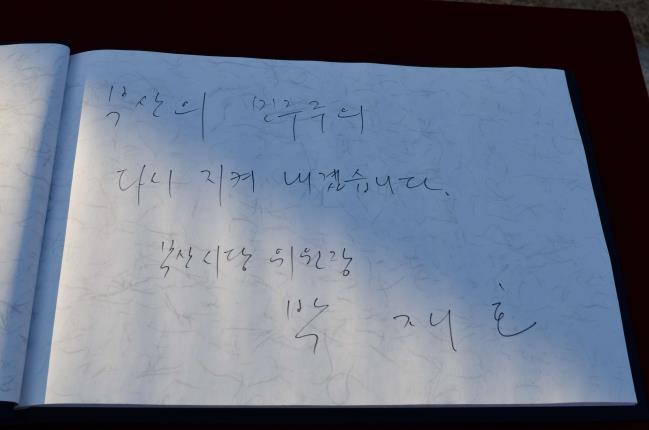 부산의 민주주의
다시 지켜 내겠습니다.
부산시당 위원장
박 재 호